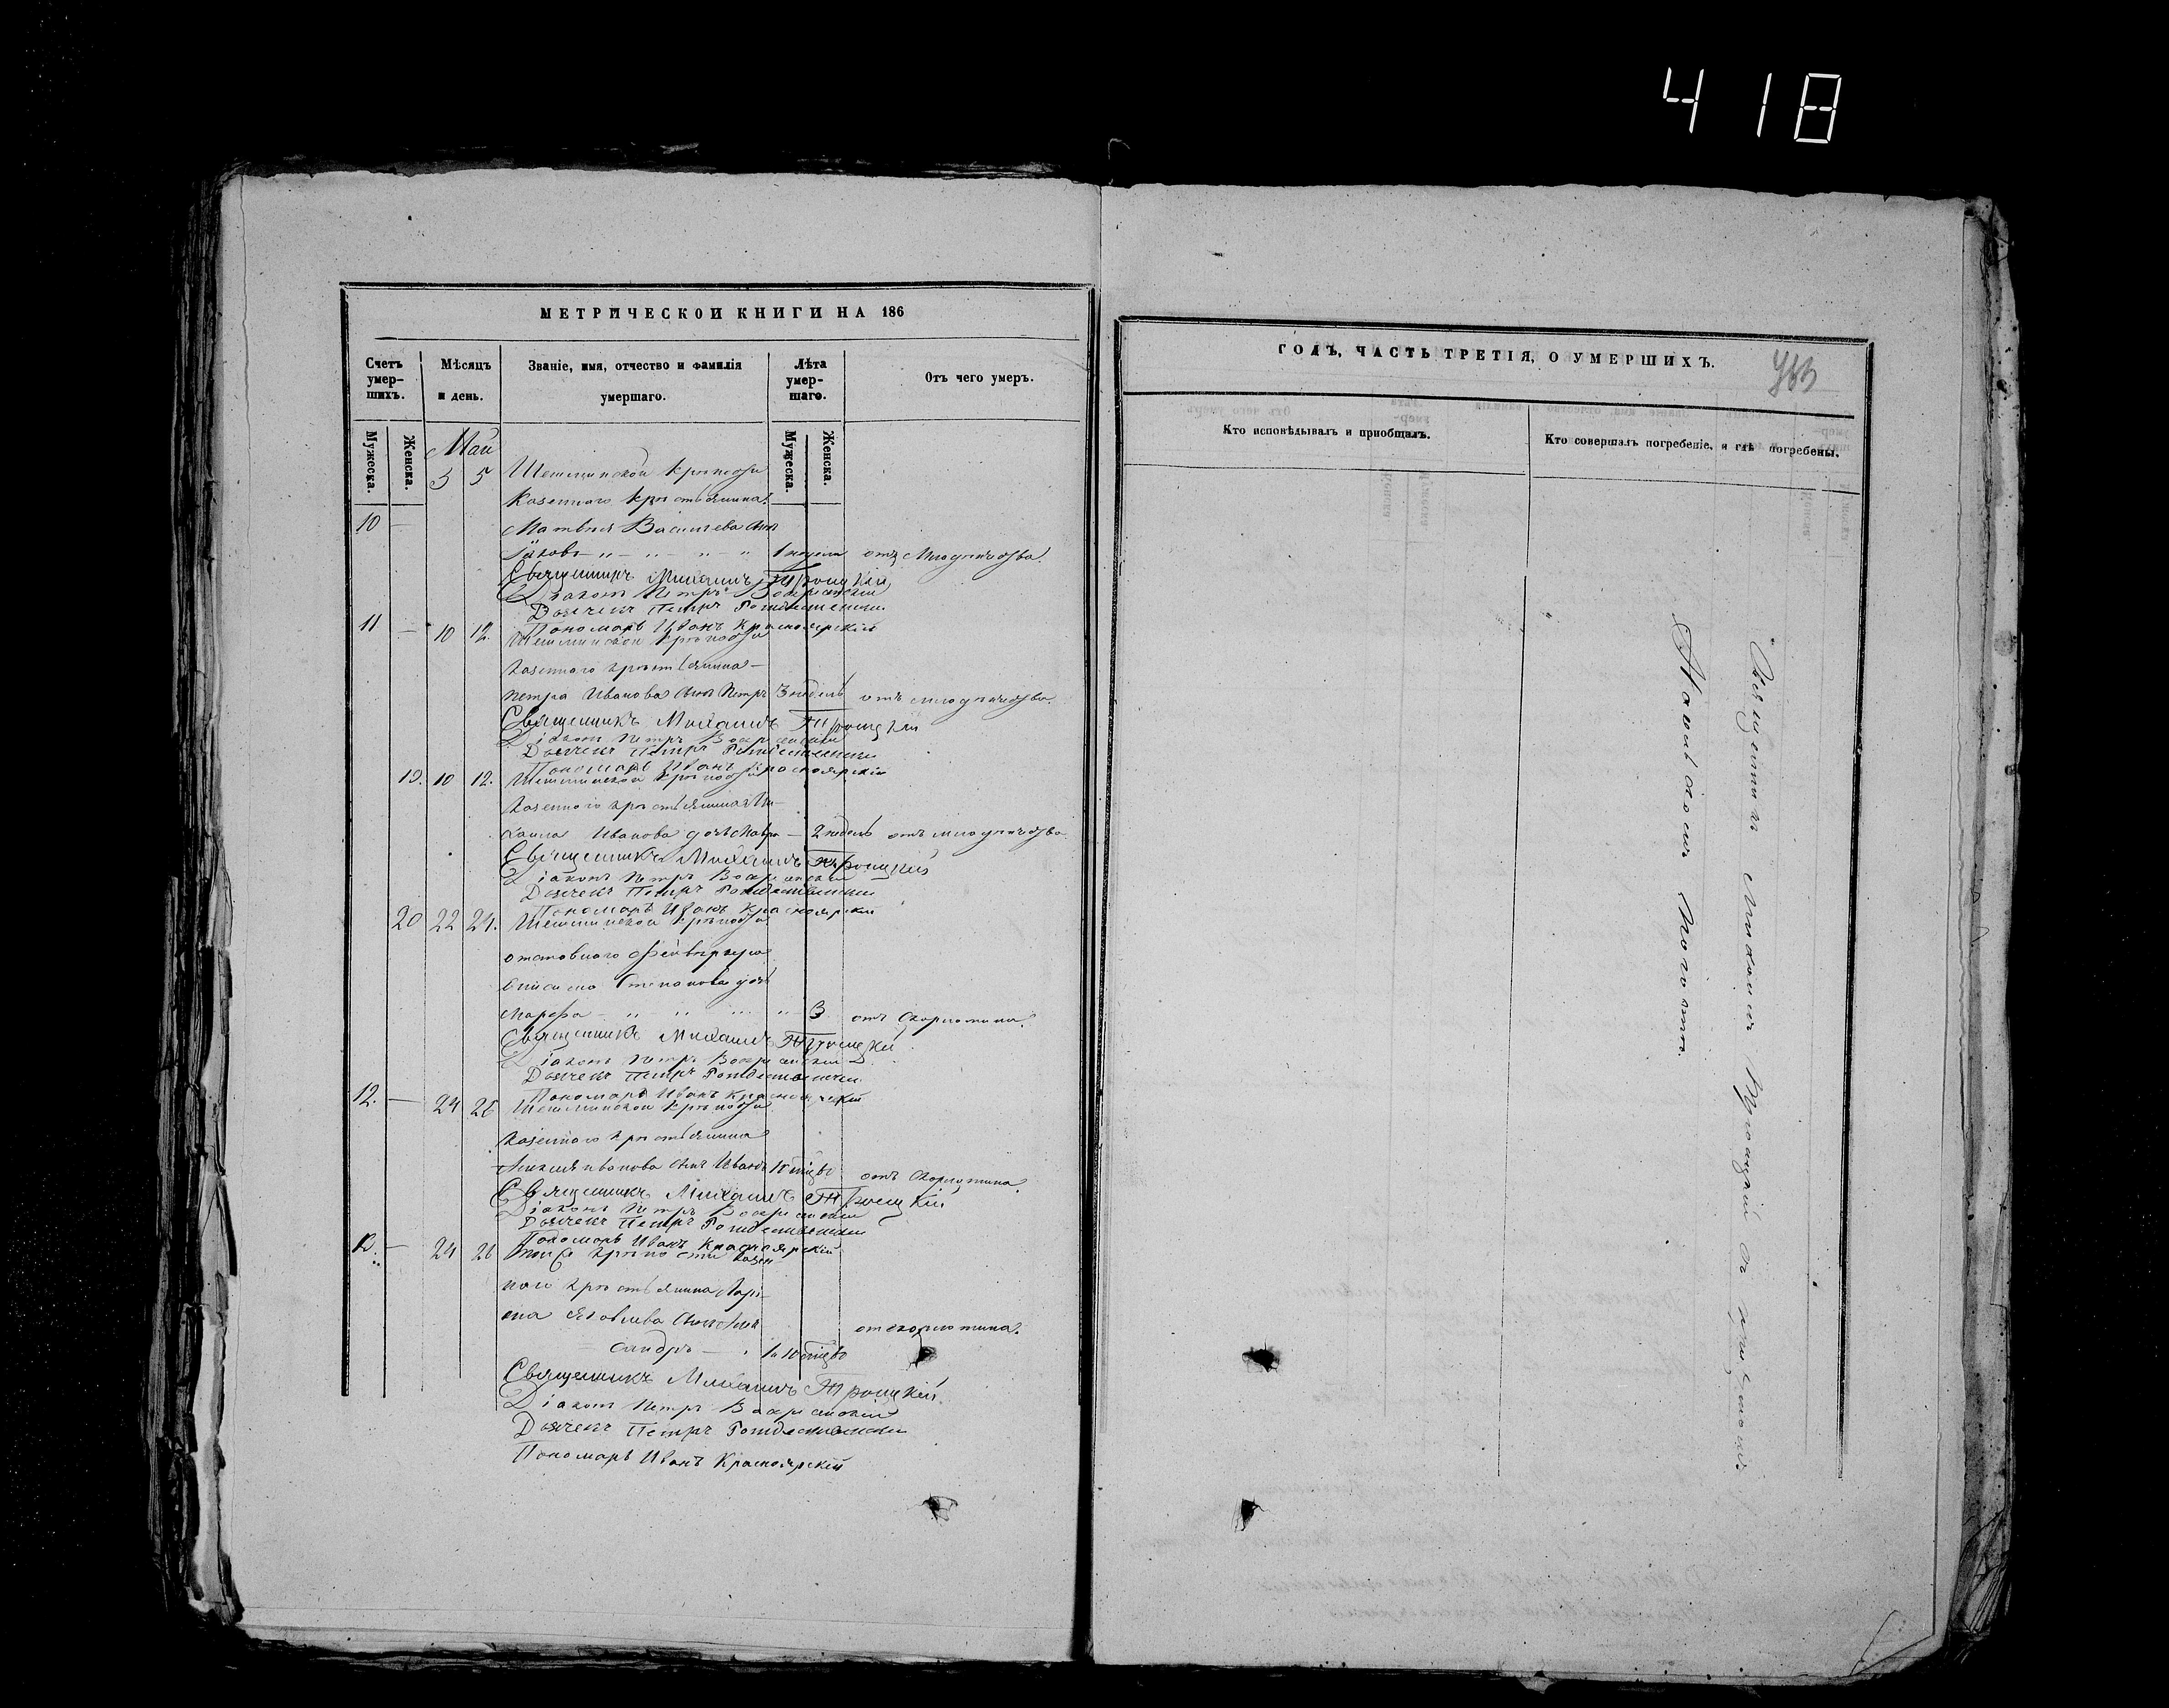 418
МЕТРИЧЕСКОЙ КНИГИ НА 186
Счетъ умер-шихъ.
Мѣсяцъ и день.
Званіе, имя, отчество и фамилія умершаго.
Лѣта умер-шаго.
Отъ чего умеръ.
Мужеска.
Женска.
Май
Мужеска.
Женска.
3 5 Шешминской крѣпости
казеннаго крестьянина
10 —
Матвѣя Васильева сынъ
Іаковъ 1 недели отъ младенчества.
Священникъ Михаилъ Троицкій
Діаконъ Петръ Воскресенскій
Дьячекъ Петръ Рождественскій
Пономарь Иванъ Красноярскій
11 — 10 12 Шешминской крѣпости
казеннаго крестьянина
Петра Иванова сынъ Петръ 3 недель отъ младенчества.
Священникъ Михаилъ Троицкій
Діаконъ Петръ Воскресенскій
Дьячекъ Петръ Рождественскій
Пономарь Иванъ Красноярскій
19. 10 12. Шешминской крѣпости
казеннаго крестьянина Ми-
хаила Иванова дочь Мавра — 2 недель отъ младенчества
Священникъ Михаилъ Троицкій
Діаконъ Петръ Воскресенскій
Дьячекъ Петръ Рождественскій
Пономарь Иванъ Красноярскій
20 22 24. Шешминской крѣпости
отставного фейверкера
Степанова дочь
Марфа 3 отъ скарлатина.
Священникъ Михаилъ Троицкій
Діаконъ Петръ Воскресенскій
Дьячекъ Петръ Рождественскій
Пономарь Иванъ Красноярскій
12. — 24 26 Шешминской крѣпости
казеннаго крестьянина
Иванова сынъ Иванъ 10 отъ скарлатина.
Священникъ Михаилъ Троицкій
Діаконъ Петръ Воскресенскій
Дьячекъ Петръ Рождественскій
Пономарь Иванъ Красноярскій
— 24 26 крѣпости казен
наго крестьянина Лари-
она Яковлева сынъ Алек
сандръ отъ скарлатина.
Священникъ Михаилъ Троицкій
Діаконъ Петръ Воскресенскій
Дьячекъ Петръ Рождественскій
Пономарь Иванъ Красноярскій
ГОДЪ, ЧАСТЬ ТРЕТІЯ, О УМЕРШИХЪ.
Кто исповѣдывалъ и пріобщалъ.
Кто совершалъ погребеніе, и гдѣ погребены.
Священникъ Михаилъ Троицкій съ причтомъ